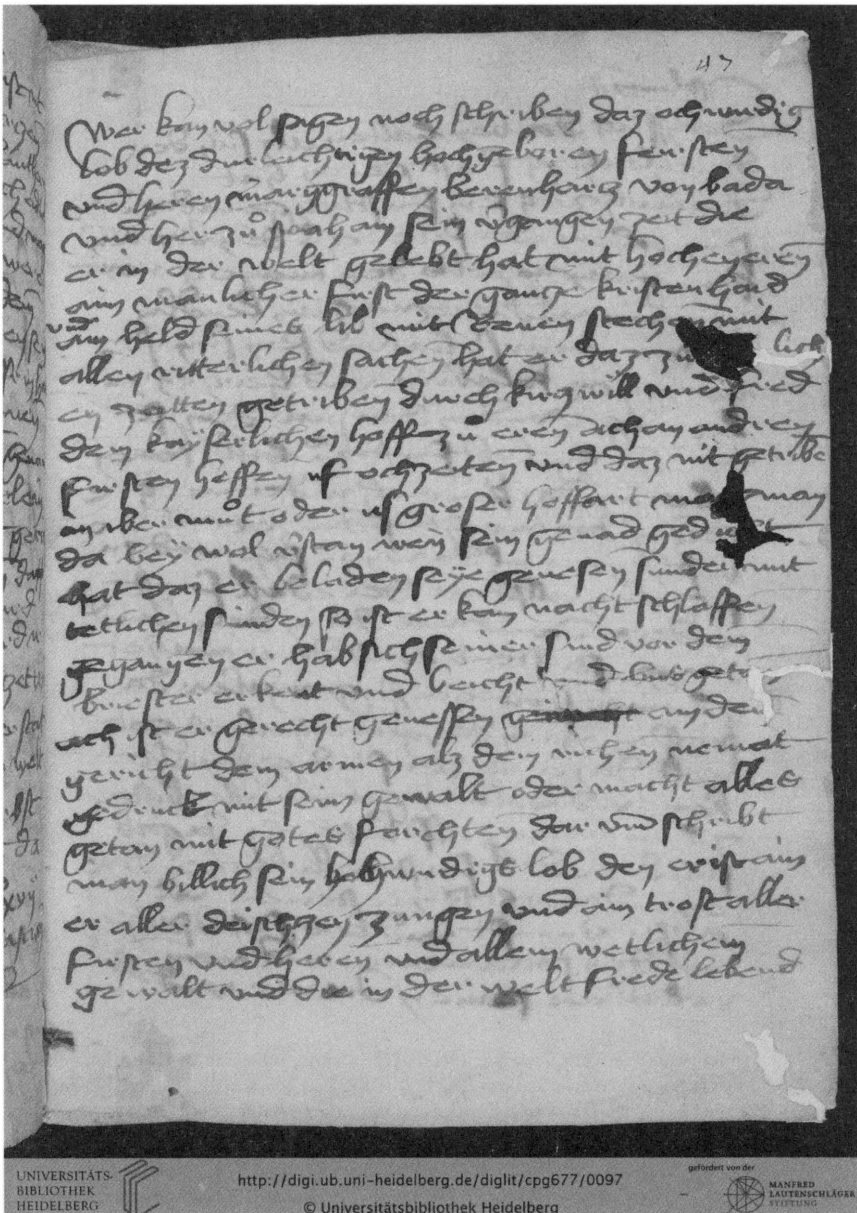 47
Wer kan vol sagen noch schriben daz och wirdig
lob dez durleichtigen hochgeboren fersten
vnd heren marggraffen berenhartz von bada
vnd her zů sein v̄gangen zeit die
er in der welt gelebt hat mit hochen eren
ain manlicher fyrst der gancze kristenhaid
vnd ain held seines lib mit stechen mit
allen ritterlichen sachen hat er daz zu lich
en zeitten getriben durch kirczwill vnd fred
dem kayserlichen hoff zů eren ach an andren
firsten heffen vf ochzeiten vnd daz nit getribē
an iber můt oder vs groser hoffart man
da bey wol v̄stan wen sein genad
hat daz er beladen seye gewesen sunder mit
tetlichen sunden so ist er kan nacht schlaffen
gegangen er hab sich seiner sind vor dem
briester erkent vnd beicht vnd bus
ach ist er gerecht gewessen an dem
gericht dem armen alz dem richen nemat
gedruckt mit sein gewalt oder macht alles
getan mit gotes forchten dar vm schribt
man billich sein hochwirdigs lob den er ist ain
er aller deischhen zungen vnd ain trost aller
firsten vnd heren vnd allem wetlichem
gewalt vnd die in der welt frede lebend
UNIVERSITÄTS-
BIBLIOTHEK
HEIDELBERG
http://digi.ub.uni-heidelberg.de/diglit/cpg677/0097
© Universitätsbibliothek Heidelberg
gefördert von der
MANFRED
LAUTENSCHLÄGER
STIFTUNG